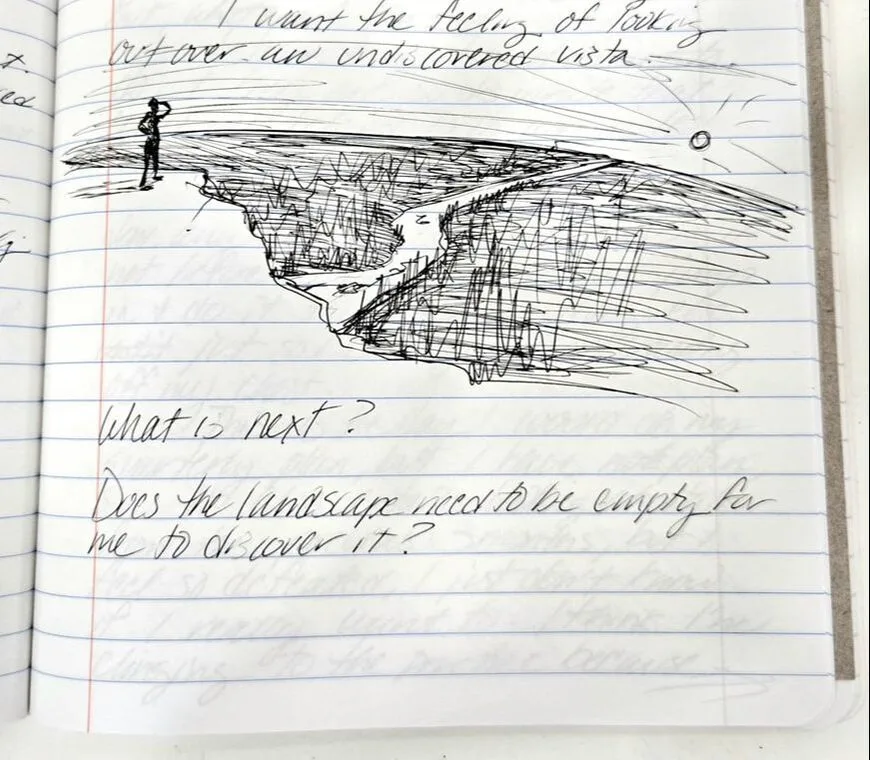 I want the feeling of looking
out over an undiscovered vista.
x.
ed
What is next?
Does the landscape need to be empty for
me to discover it?